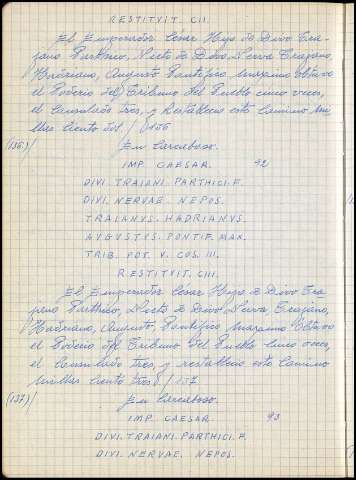 RESTITVIT. CII.
El Emperador César Hijo de Divo Tra-
jano Parthico, Nieto de Divo Nerva Trajano,
Hadriano, Augusto Pontífice maximo obtuvo
el Poderio del Tribuno del Pueblo cinco veces,
el Consulado tres, y Restablecio este Camino Mi-
llas Ciento dos. / 136
(136)/ En Carcaboso.
IMP. CAESAR. 92
DIVI. TRAIANI. PARTHICI. F.
DIVI. NERVAE. NEPOS.
TRAIANVS. HADRIANVS.
AVGVSTVS. PONTIF. MAX.
TRIB. POT. V. COS. III.
RESTITVIT. CIII.
El Emperador César Hijo de Divo Tra-
jano Parthico, Nieto de Divo Nerva Trajano,
Hadriano, Augusto, Pontífice maximo Obtuvo
el Poderio del Tribuno del Pueblo cinco veces,
el Consulado tres, y restablecio este Camino
millas Ciento tres / 137
(137)/ En Carcaboso.
IMP. CAESAR 93
DIVI. TRAIANI. PARTHICI. F.
DIVI. NERVAE. NEPOS.